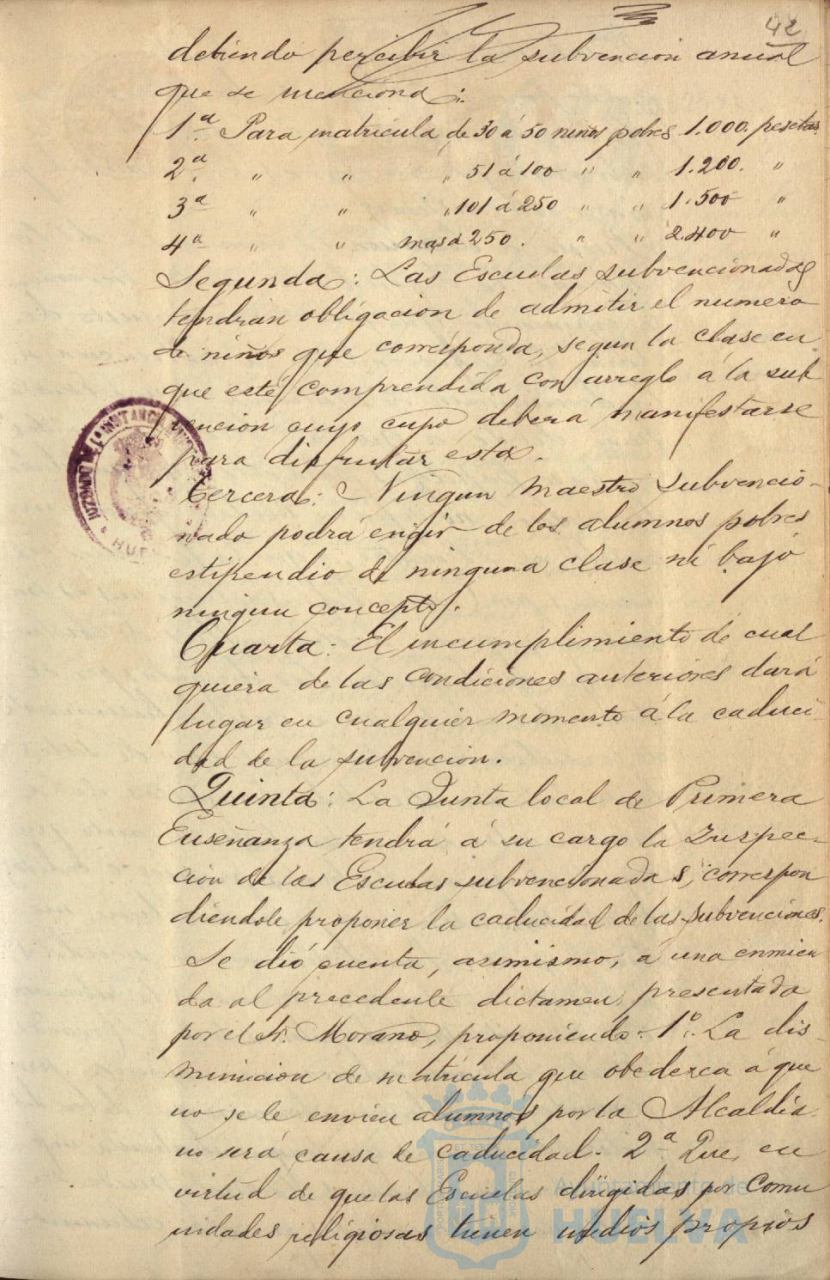 42
debiendo percibir la subvencion anual
que se menciona:
1ª Para matricula de 30 á 50 niños pobres 1.000. pesetas.
2ª " " " 51 á 100 " " 1.200. "
3ª " " " 101 á 250 " " 1.500 "
4ª " " mas d 250. " " 2.400 "
Segunda: Las Escuelas subvencionadas
tendrán obligacion de admitir el numero
de niños que corresponda, segun la clase en
que esté comprendida con arreglo á la sub
vencion cuyo cupo deberá manifestarse
para disfrutar esta.
Tercera: Ningun maestro subvencio-
nado podrá exigir de los alumnos pobres
estipendio de ninguna clase ni bajo
ningun concepto.
Cuarta: El incumplimiento de cual
quiera de las condiciones anteriores dará
lugar en cualquier momento á la caduci-
dad de la subvencion.
Quinta: La Junta local de Primera
Enseñanza tendrá á su cargo la Inspec-
cion de las Escuelas subvencionadas, correspon
diendole proponer la caducidad de las subvenciones.
Se dió cuenta, asimismo, á una enmien
da al precedente dictamen, presentada
por el Sr. Morano, proponiendo: 1º. La dis-
minucion de matricula que obedezca á que
no se le envien alumnos por la Alcaldía
no será causa de caducidad. 2ª Que, en
virtud de que las Escuelas dirigidas por Comu
nidades religiosas tienen medios propios
JUZGADO DE 1ª INSTANCIA
HUE
Ayuntamiento de
HUELVA